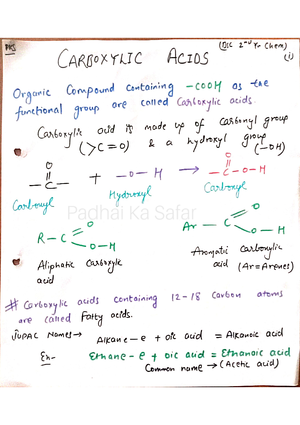 PKS
CARBOXYLIC ACIDS
(BSc 2nd Yr Chem)
(i)
Organic Compound containing -COOH as the
functional group are called Carboxylic acids.
Carboxylic acid is made up of carbonyl group
(>C=O) & a hydroxyl group (-OH)
O
-C- + -O-H → -C-O-H
O
Carbonyl Hydroxyl Carboxyl
Padhai Ka Safar
R-C
O
O-H
Ar-C
O
O-H
Aliphatic Carboxylic
acid
Aromatic Carboxylic
acid (Ar=Arenes)
# Carboxylic acids containing 12-18 Carbon atoms
are called Fatty acids.
IUPAC Names → Alkane-e + oic acid = Alkanoic acid
Ex- Ethane-e + oic acid = Ethanoic acid
Common name → (Acetic acid)